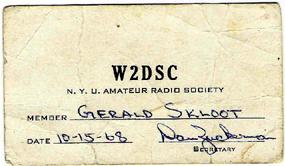 W2DSC
N. Y. U. AMATEUR RADIO SOCIETY
MEMBER GERALD SKLOOT
DATE 10-15-68 Dan Zuckerman
SECRETARY